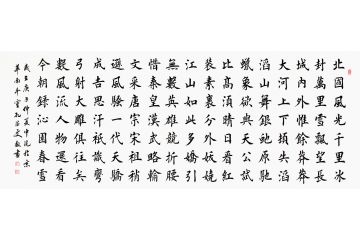 北國風光千里冰
封萬里雪飄望長
城內外惟餘莽莽
大河上下頓失滔
滔山舞銀蛇原馳
蠟象欲與天公試
比高須晴日看紅
裝素裹分外妖嬈
江山如此多嬌引
無數英雄競折腰
惜秦皇漢武略輸
文采唐宗宋祖稍
遜風騷一代天驕
成吉思汗祇識彎
弓射大雕俱往矣
數風流人物還看
今朝録沁園春雪
庚子仲夏中浣於京